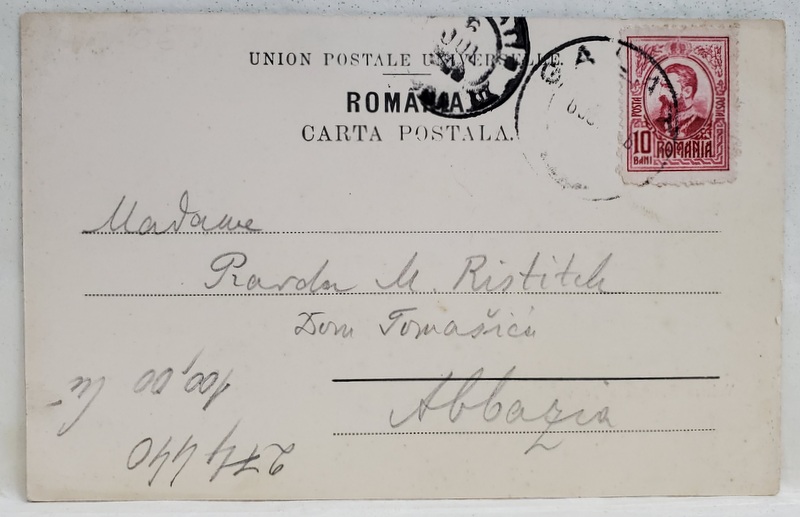 UNION POSTALE UNIVERSELLE.
ROMANIA
CARTA POSTALA.
POSTA
10
BANI
ROMANIA
Madame
M. Ristitch
Dom Tomašića
Abbazia
100,00
274 440